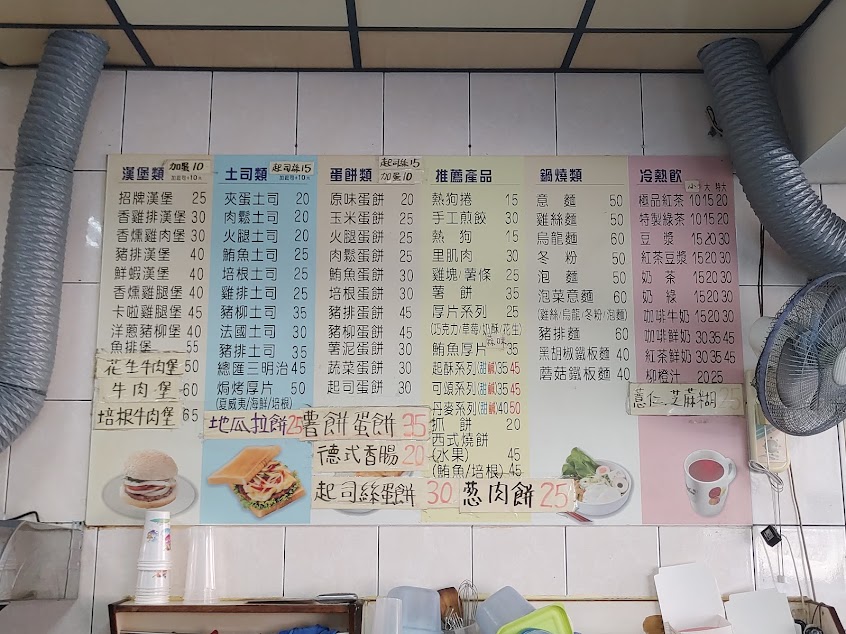 漢堡類 加蛋10
加起司+10元
招牌漢堡 25
香雞排漢堡 30
香燻雞肉堡 30
豬排漢堡 40
鮮蝦漢堡 40
香燻雞腿堡 40
卡啦雞腿堡 45
洋蔥豬柳堡 40
魚排堡 55
花生牛肉堡 50
牛肉堡 60
培根牛肉堡 65
土司類 起司絲15
加起司+10元
夾蛋土司 20
肉鬆土司 20
火腿土司 20
鮪魚土司 25
培根土司 25
雞排土司 25
豬柳土司 35
法國土司 30
豬排土司 35
總匯三明治 45
焗烤厚片 50
(夏威夷/海鮮/培根)
地瓜拉餅25
蛋餅類 起司絲15
加蛋10
原味蛋餅 20
玉米蛋餅 25
火腿蛋餅 25
肉鬆蛋餅 25
鮪魚蛋餅 30
培根蛋餅 30
豬排蛋餅 45
豬柳蛋餅 40
薯泥蛋餅 30
蔬菜蛋餅 30
起司蛋餅 30
薯餅蛋餅 35
德式香腸 20
起司絲蛋餅 30
推薦產品
熱狗捲 15
手工煎餃 30
熱狗 15
里肌肉 30
雞塊/薯條 25
薯餅 35
厚片系列 25
(巧克力/草莓/奶酥/花生)
蒜味
鮪魚厚片 35
起酥系列(甜鹹)35 45
可頌系列(甜鹹)35 45
丹麥系列(甜鹹)40 50
抓餅 20
西式燒餅
(水果) 45
(鮪魚/培根) 45
蔥肉餅 25
鍋燒類
意麵 50
雞絲麵 50
烏龍麵 60
冬粉 50
泡麵 50
泡菜意麵 60
(雞絲/烏龍/冬粉/泡麵)
豬排麵 60
黑胡椒鐵板麵 40
蘑菇鐵板麵 40
冷熱飲
小 中 大 特大
極品紅茶 10 15 20
特製綠茶 10 15 20
豆漿 15 20 30
紅茶豆漿 15 20 30
奶茶 15 20 30
奶綠 15 20 30
咖啡牛奶 15 20 30
咖啡鮮奶 30 35 45
紅茶鮮奶 30 35 45
柳橙汁 20 25
薏仁.芝麻糊 25